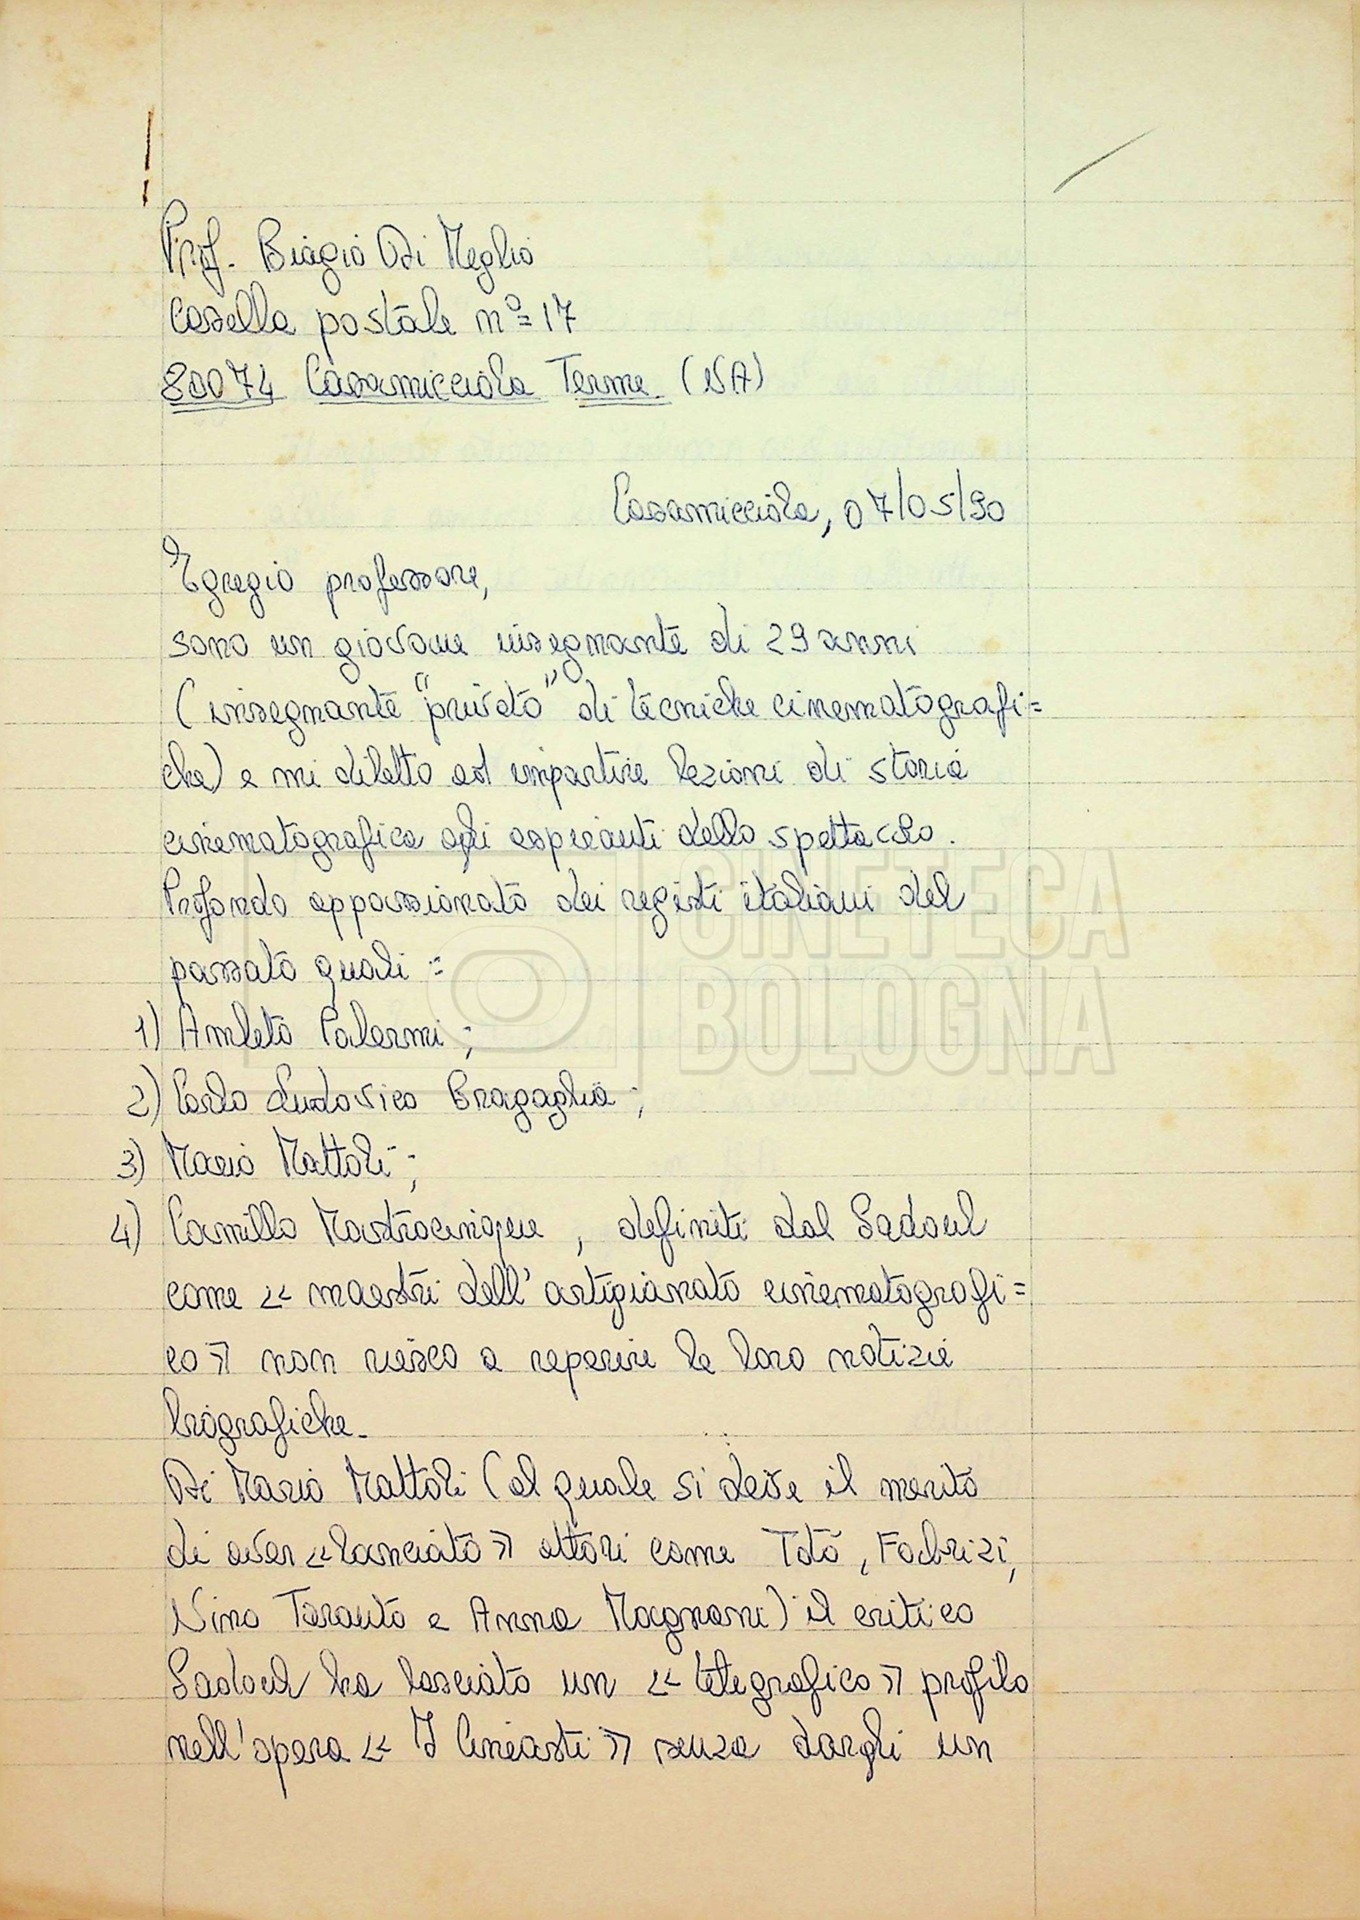 Prof. Biagio Di Meglio
Casella postale n° 17
80074 Casamicciola Terme (NA)
Casamicciola, 07/05/90
Egregio professore,
sono un giovane insegnante di 29 anni
(insegnante "privato" di tecniche cinematografi=
che) e mi diletto ad impartire lezioni di storia
cinematografica agli aspiranti dello spettacolo.
Profondo appassionato dei registi italiani del
passato quali:
1) Amleto Palermi;
2) Carlo Ludovico Bragaglia;
3) Mario Mattoli;
4) Camillo Mastrocinque, definiti dal Sadoul
come << maestri dell'artigianato cinematografi=
co >> non riesco a reperire le loro notizie
biografiche.
Di Mario Mattoli (al quale si deve il merito
di aver << lanciato >> attori come Totò, Fabrizi,
Nino Taranto e Anna Magnani) il critico
Sadoul ha lasciato un << telegrafico >> profilo
nell'opera << I Cineasti >> senza dargli un
CINETECA
BOLOGNA